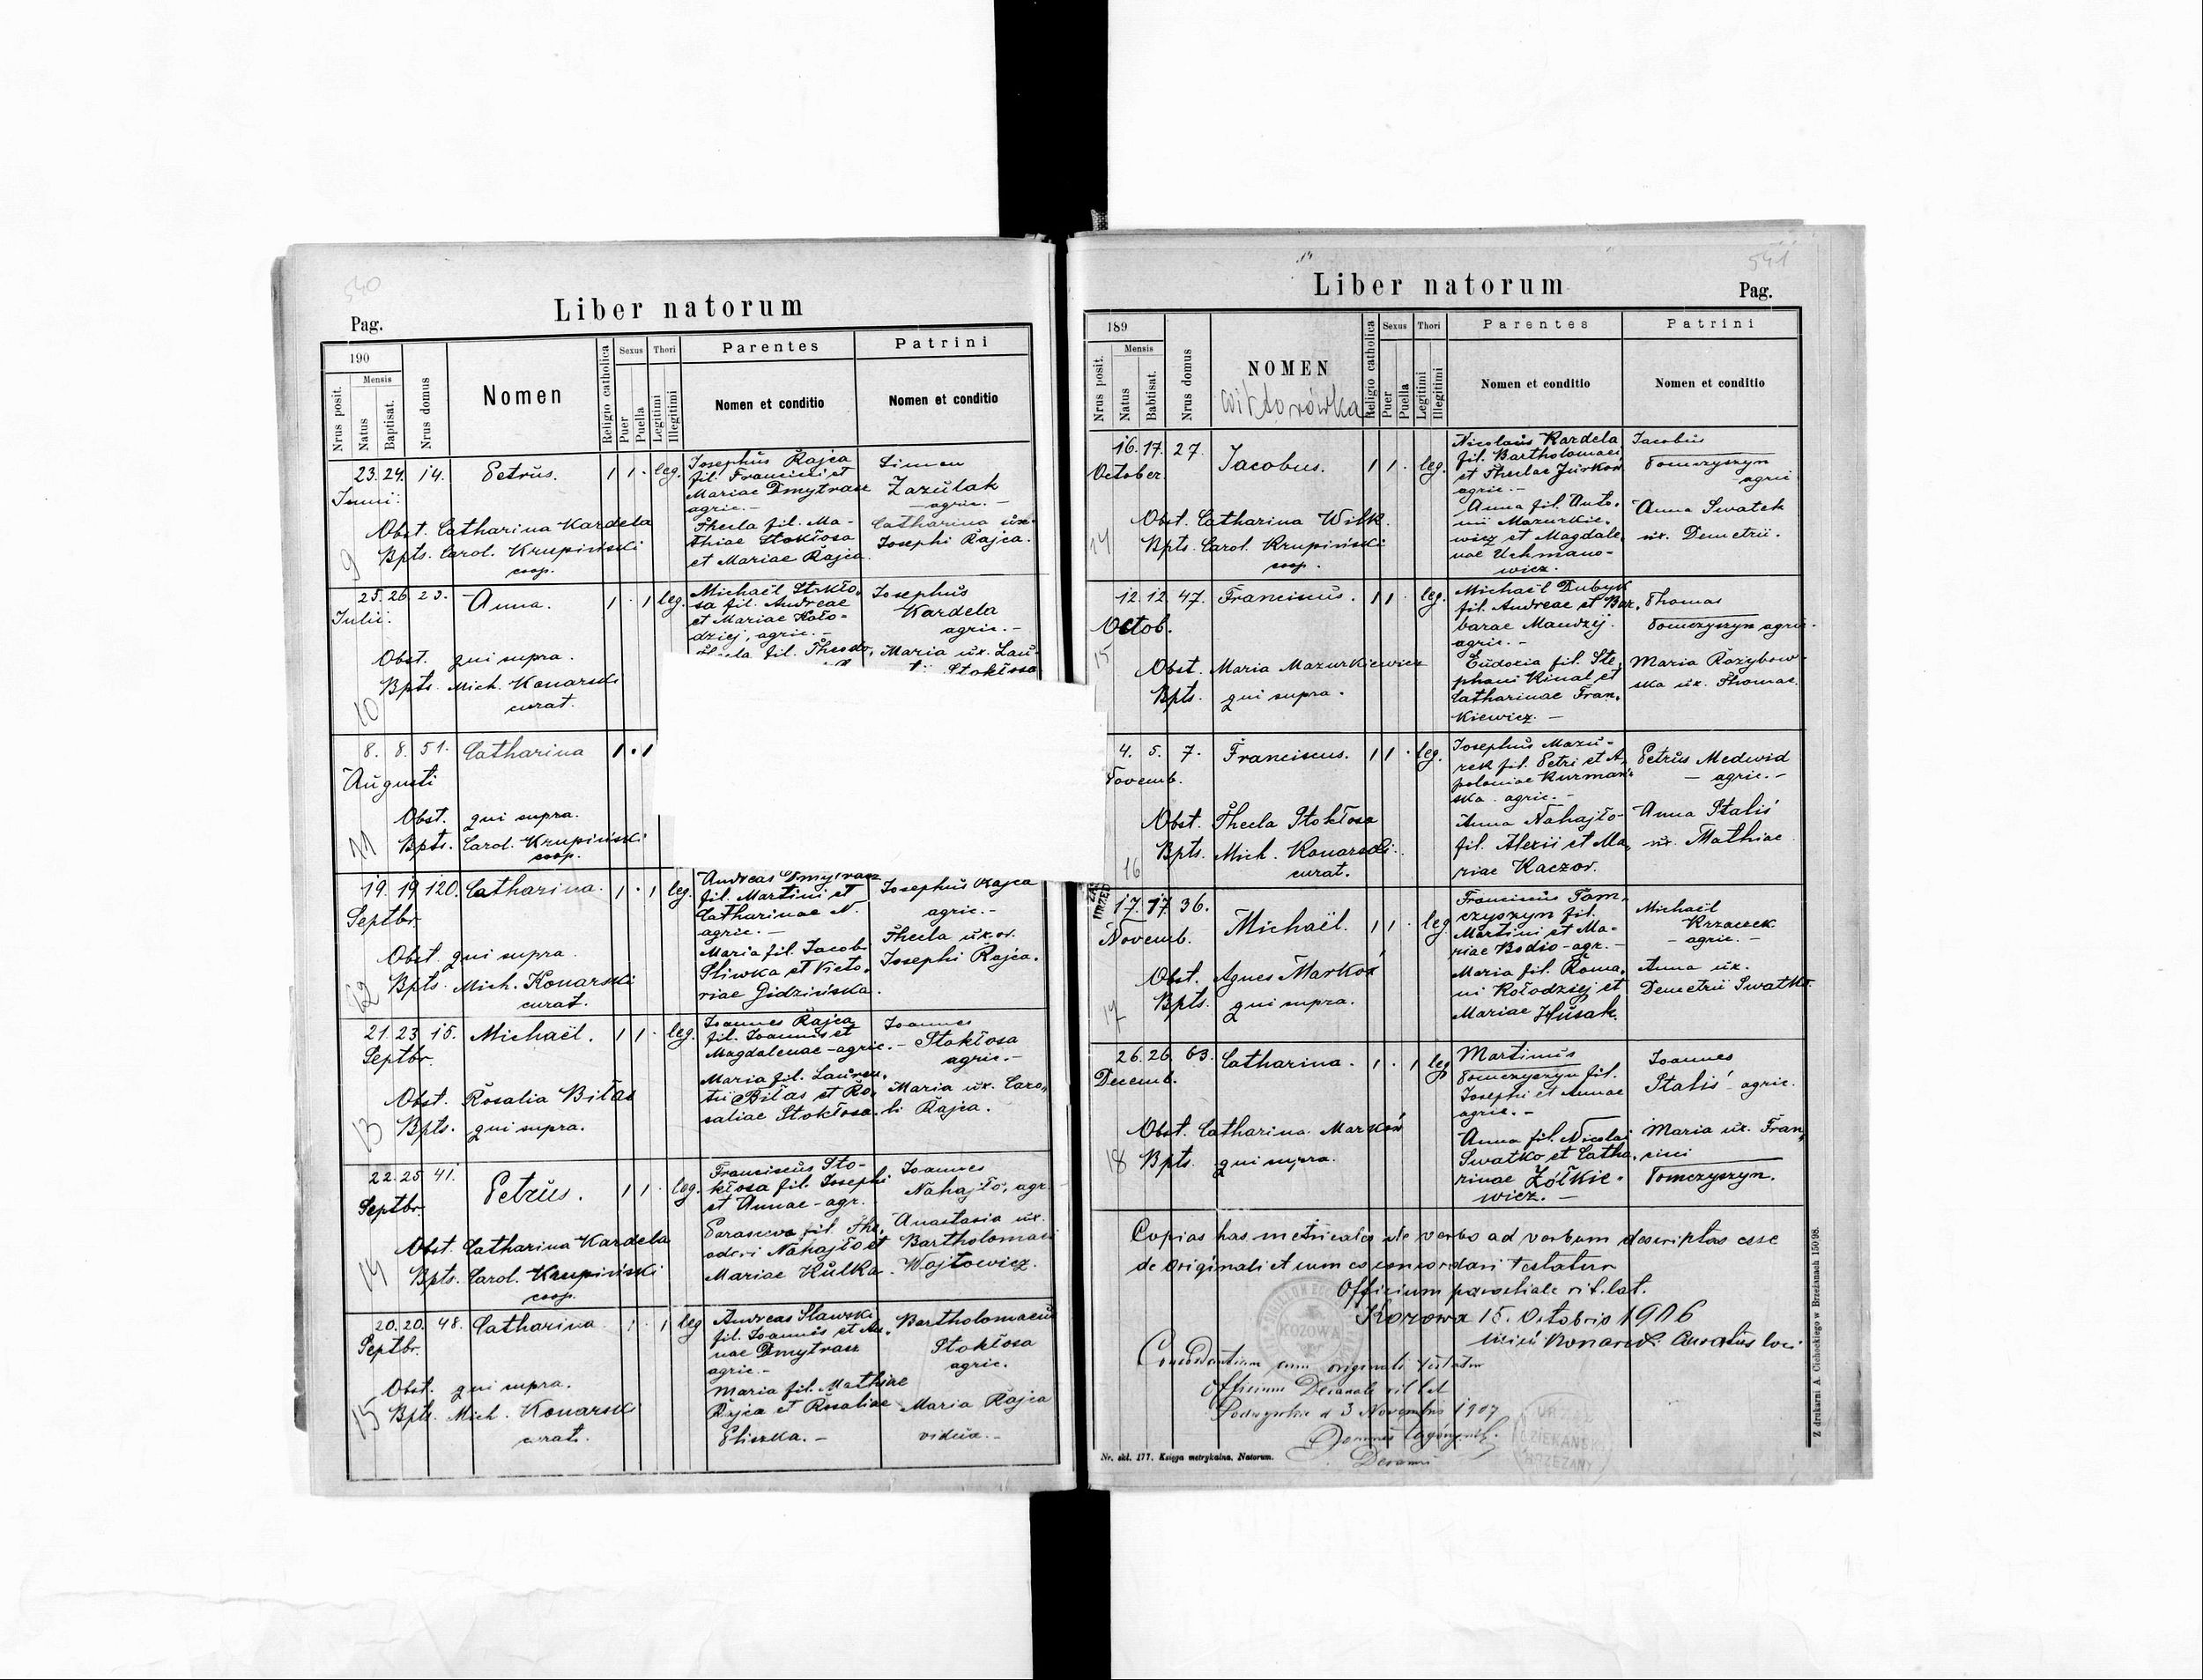 540
Liber natorum
Pag.
190
Nrus posit.
Mensis
Natus
Baptisat.
Nrus domus
Nomen
Religio catholica
Sexus
Puer
Puella
Thori
Legitimi
Illegitimi
Parentes
Nomen et conditio
Patrini
Nomen et conditio
23. 24. 14. Petrus. 1 1 · leg.
Junii.
Josephus Rajca
fil. Francisci et
Mariae Dmytrasz
agric. —
Thecla fil. Ma-
thiae Stokłosa
et Mariae Rajca.
Simon
Zazulak
— agric. —
Catharina ux.
Josephi Rajca.
Obst. Catharina Kardela
9 Bpts. Carol. Krupiński
coop.
25. 26. 23. Anna. 1 · 1 leg.
Julii.
Michaël Stokło-
sa fil. Andreae
et Mariae Koło-
dziej, agric. —
fil. Theodo-
Josephus
Kardela
agric. —
Maria ux. Lau-
Stokłosa
Obst. qui supra.
10 Bpts. Mich. Konarski
curat.
8. 8. 51. Catharina 1 · 1
Augusti
Obst. qui supra.
11 Bpts. Carol. Krupiński
coop.
19. 19. 120. Catharina. 1 · 1 leg.
Septbr.
Andreas Dmytrasz
fil. Martini et
Catharinae N.
agric. —
Maria fil. Jacobi
Śliwka et Victo-
riae Gidzińska.
Josephus Rajca
agric. —
Thecla uxor.
Josephi Rajca.
Obst. qui supra.
12 Bpts. Mich. Konarski
curat.
21. 23. 15. Michaël. 1 1 · leg.
Septbr.
Joannes Rajca
fil. Joannis et
Magdalenae - agric. —
Maria fil. Lauren-
tii Bilas et Ro-
saliae Stokłosa.
Joannes
Stokłosa
agric. —
Maria ux. Caro-
li Rajca.
Obst. Rosalia Bilas
13 Bpts. qui supra.
22. 25. 41. Petrus. 1 1 · leg.
Septbr.
Franciscus Sto-
kłosa fil. Josephi
et Annae - agr.
Parascewa fil. The-
odori Nahajło et
Mariae Kulka.
Joannes
Nahajło, agr.
Anastasia ux.
Bartholomaei
Wojtowicz.
Obst. Catharina Kardela
14 Bpts. Carol. Krupiński
coop.
20. 20. 48. Catharina. 1 · 1 leg
Septbr.
Andreas Slawski
fil. Joannis et An-
nae Dmytrasz
agric. —
Maria fil. Mathiae
Rajca et Rosaliae
Pliszka. —
Bartholomaeus
Stokłosa
agric.
Maria Rajca
vidua. —
Obst. qui supra.
15 Bpts. Mich. Konarski
curat.
541
Liber natorum
Pag.
189
Nrus posit.
Mensis
Natus
Babtisat.
Nrus domus
NOMEN
Wiktorówka
Religio catholica
Sexus
Puer
Puella
Thori
Legitimi
Illegitimi
Parentes
Nomen et conditio
Patrini
Nomen et conditio
16. 17. 27. Jacobus. 1 1 · leg.
October.
Nicolaus Kardela
fil. Bartholomaei
et Theclae Jurkow
agric. —
Anna fil. Anto-
nii Mazurkie-
wicz et Magdale-
nae Uchmano-
wicz.
Jacobus
Tomczyszyn
agric
Anna Swatek
ux. Demetrii.
Obst. Catharina Wilk.
14 Bpts. Carol. Krupiński
coop.
12. 12. 47. Franciscus. 1 1 · leg.
Octob.
Michaël Dubyk
fil. Andreae et Bar-
barae Mandzij.
agric. —
Eudoxia fil. Ste-
phani Kinal et
Catharinae Fran-
kiewicz. —
Thomas
Tomczyszyn agric.
Maria Rozybow-
ska ux. Thomae.
15 Obst. Maria Mazurkiewicz
Bpts. qui supra.
4. 5. 7. Franciscus. 1 1 · leg.
Novemb.
Josephus Mazu-
rek fil. Petri et A-
poloniae Kurmań-
ska agric. —
Anna Nahajło-
fil. Alexii et Ma-
riae Kaczor.
Petrus Medwid
— agric. —
Anna Staliś
ux. Mathiae
Obst. Thecla Stokłosa
16 Bpts. Mich. Konarski.
curat.
17. 17. 36. Michaël. 1 1 · leg
Novemb.
Franciscus Tom-
czyszyn fil.
Martini et Ma-
riae Bodio - agr. —
Maria fil. Roma-
ni Kołodziej et
Mariae Husak.
Michaël
Krzaczek
— agric. —
Anna ux.
Demetrii Swatko.
Obst. Agnes Markow
17 Bpts. qui supra.
26. 26. 63. Catharina. 1 · 1 leg
Decemb.
Martinus
Tomczyszyn fil.
Josephi et Annae
agric. —
Anna fil. Nicolai
Swatko et Catha-
rinae Żółkie-
wicz. —
Joannes
Staliś - agric.
Maria ux. Fran-
cisci
Tomczyszyn.
Obst. Catharina Marków
18 Bpts. qui supra.
Copias has metricales de verbo ad verbum descriptas esse
de originali et cum eo concordari testatur
Officium parochiale rit. lat.
Kozowa 15. Octobris 1906
Konarski Curatus loci
KOZOWA
Concordantiam cum originali testatur
Officium Decanale rit lat
d 3 Novembris 1907
URZĄD
DZIEKAŃSKI
BRZEŻANY
Nr. skł. 177. Księga metrykalna. Natorum.
Z drukarni A. Cichockiego w Brzeżanach 150 98.